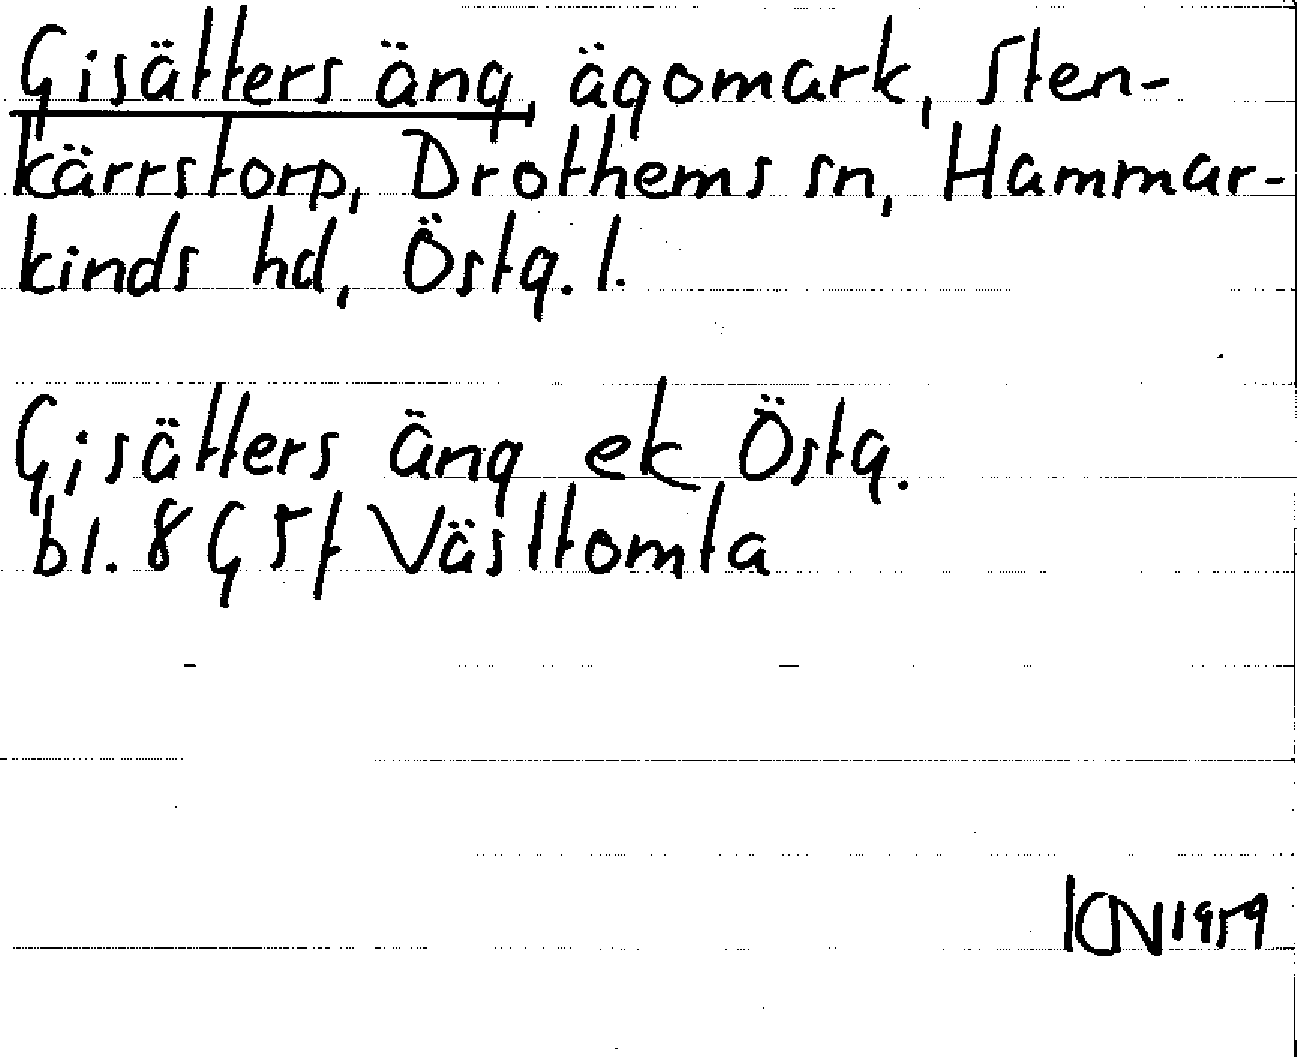 Gisätters äng, ägomark, Sten-
kärrstorp, Drothems sn, Hammar-
kinds hd, Östg. l.
Gisätters äng ek Östg.
bl. 8 G 5 f Västtomta
KN 1959